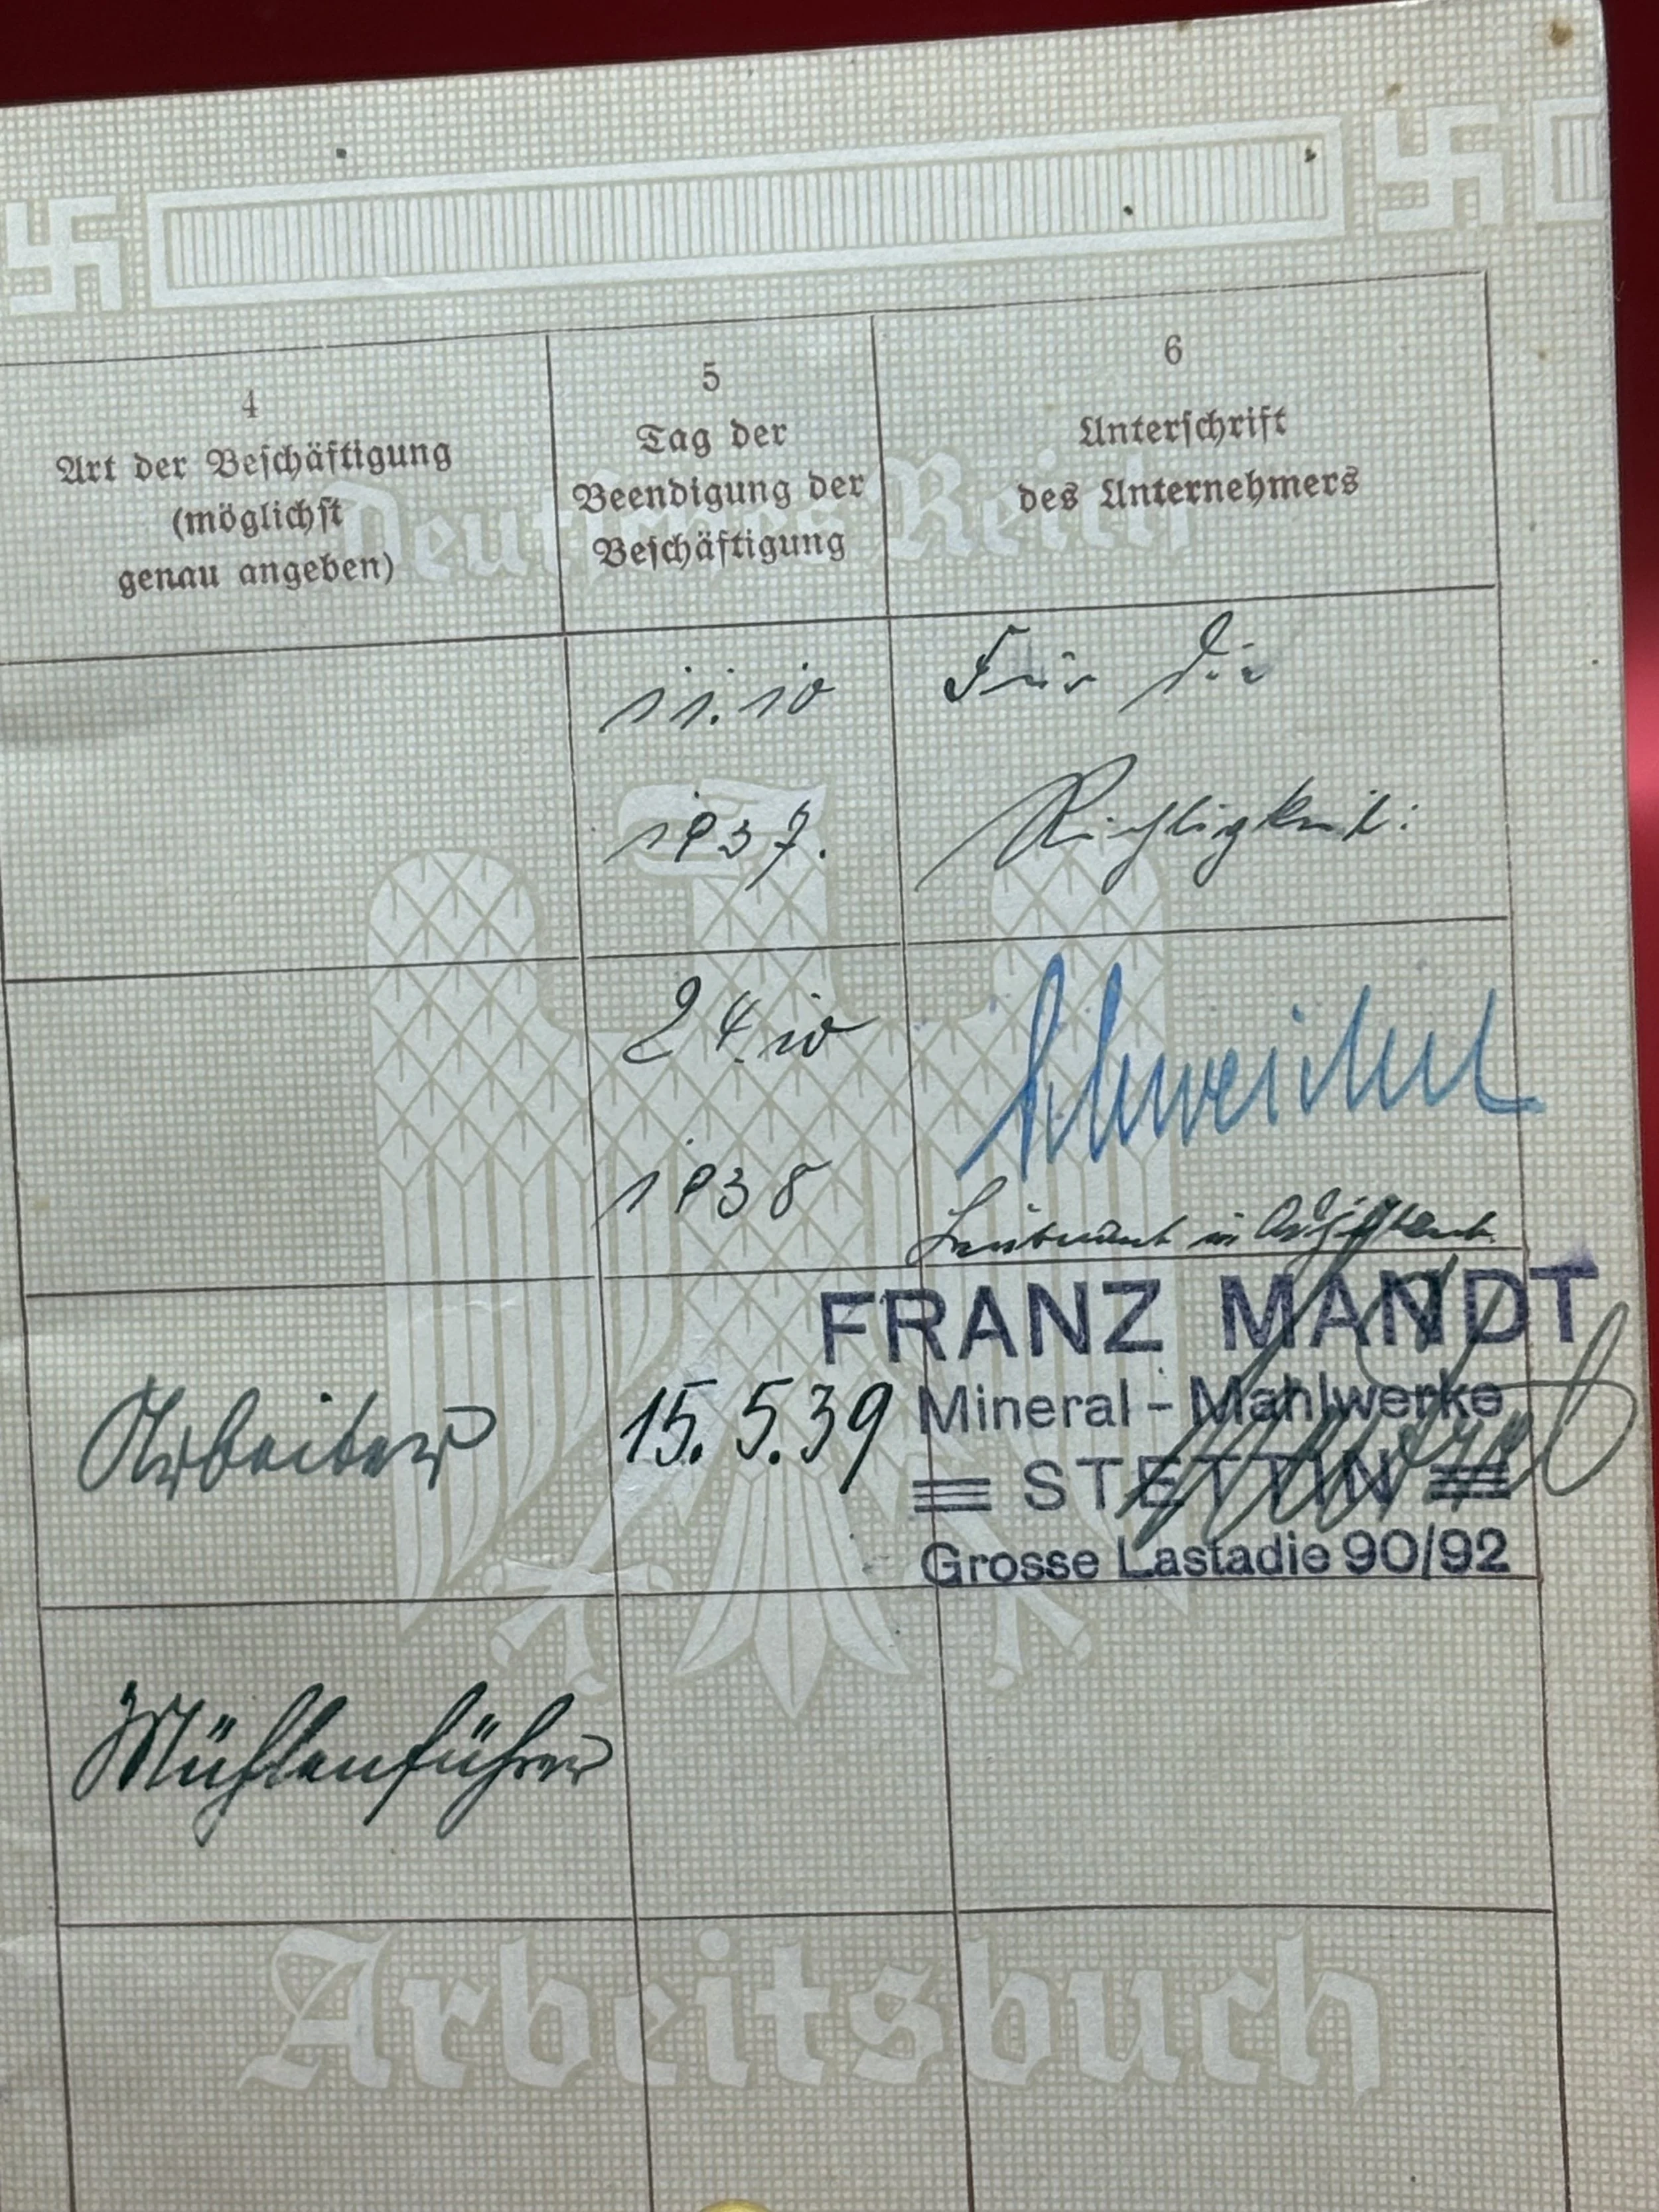 4
Art der Beschäftigung
(möglichst
genau angeben)
5
Tag der
Beendigung der
Beschäftigung
6
Unterschrift
des Unternehmers
Deutsches Reich
11.10
1937.
Für die
Richtigkeit:
24.10
1938
Leutnant u. Adjutant
Arbeiter
15.5.39
FRANZ MANDT
Mineral-Mahlwerke
STETTIN
Grosse Lastadie 90/92
Mühlenführer
Arbeitsbuch